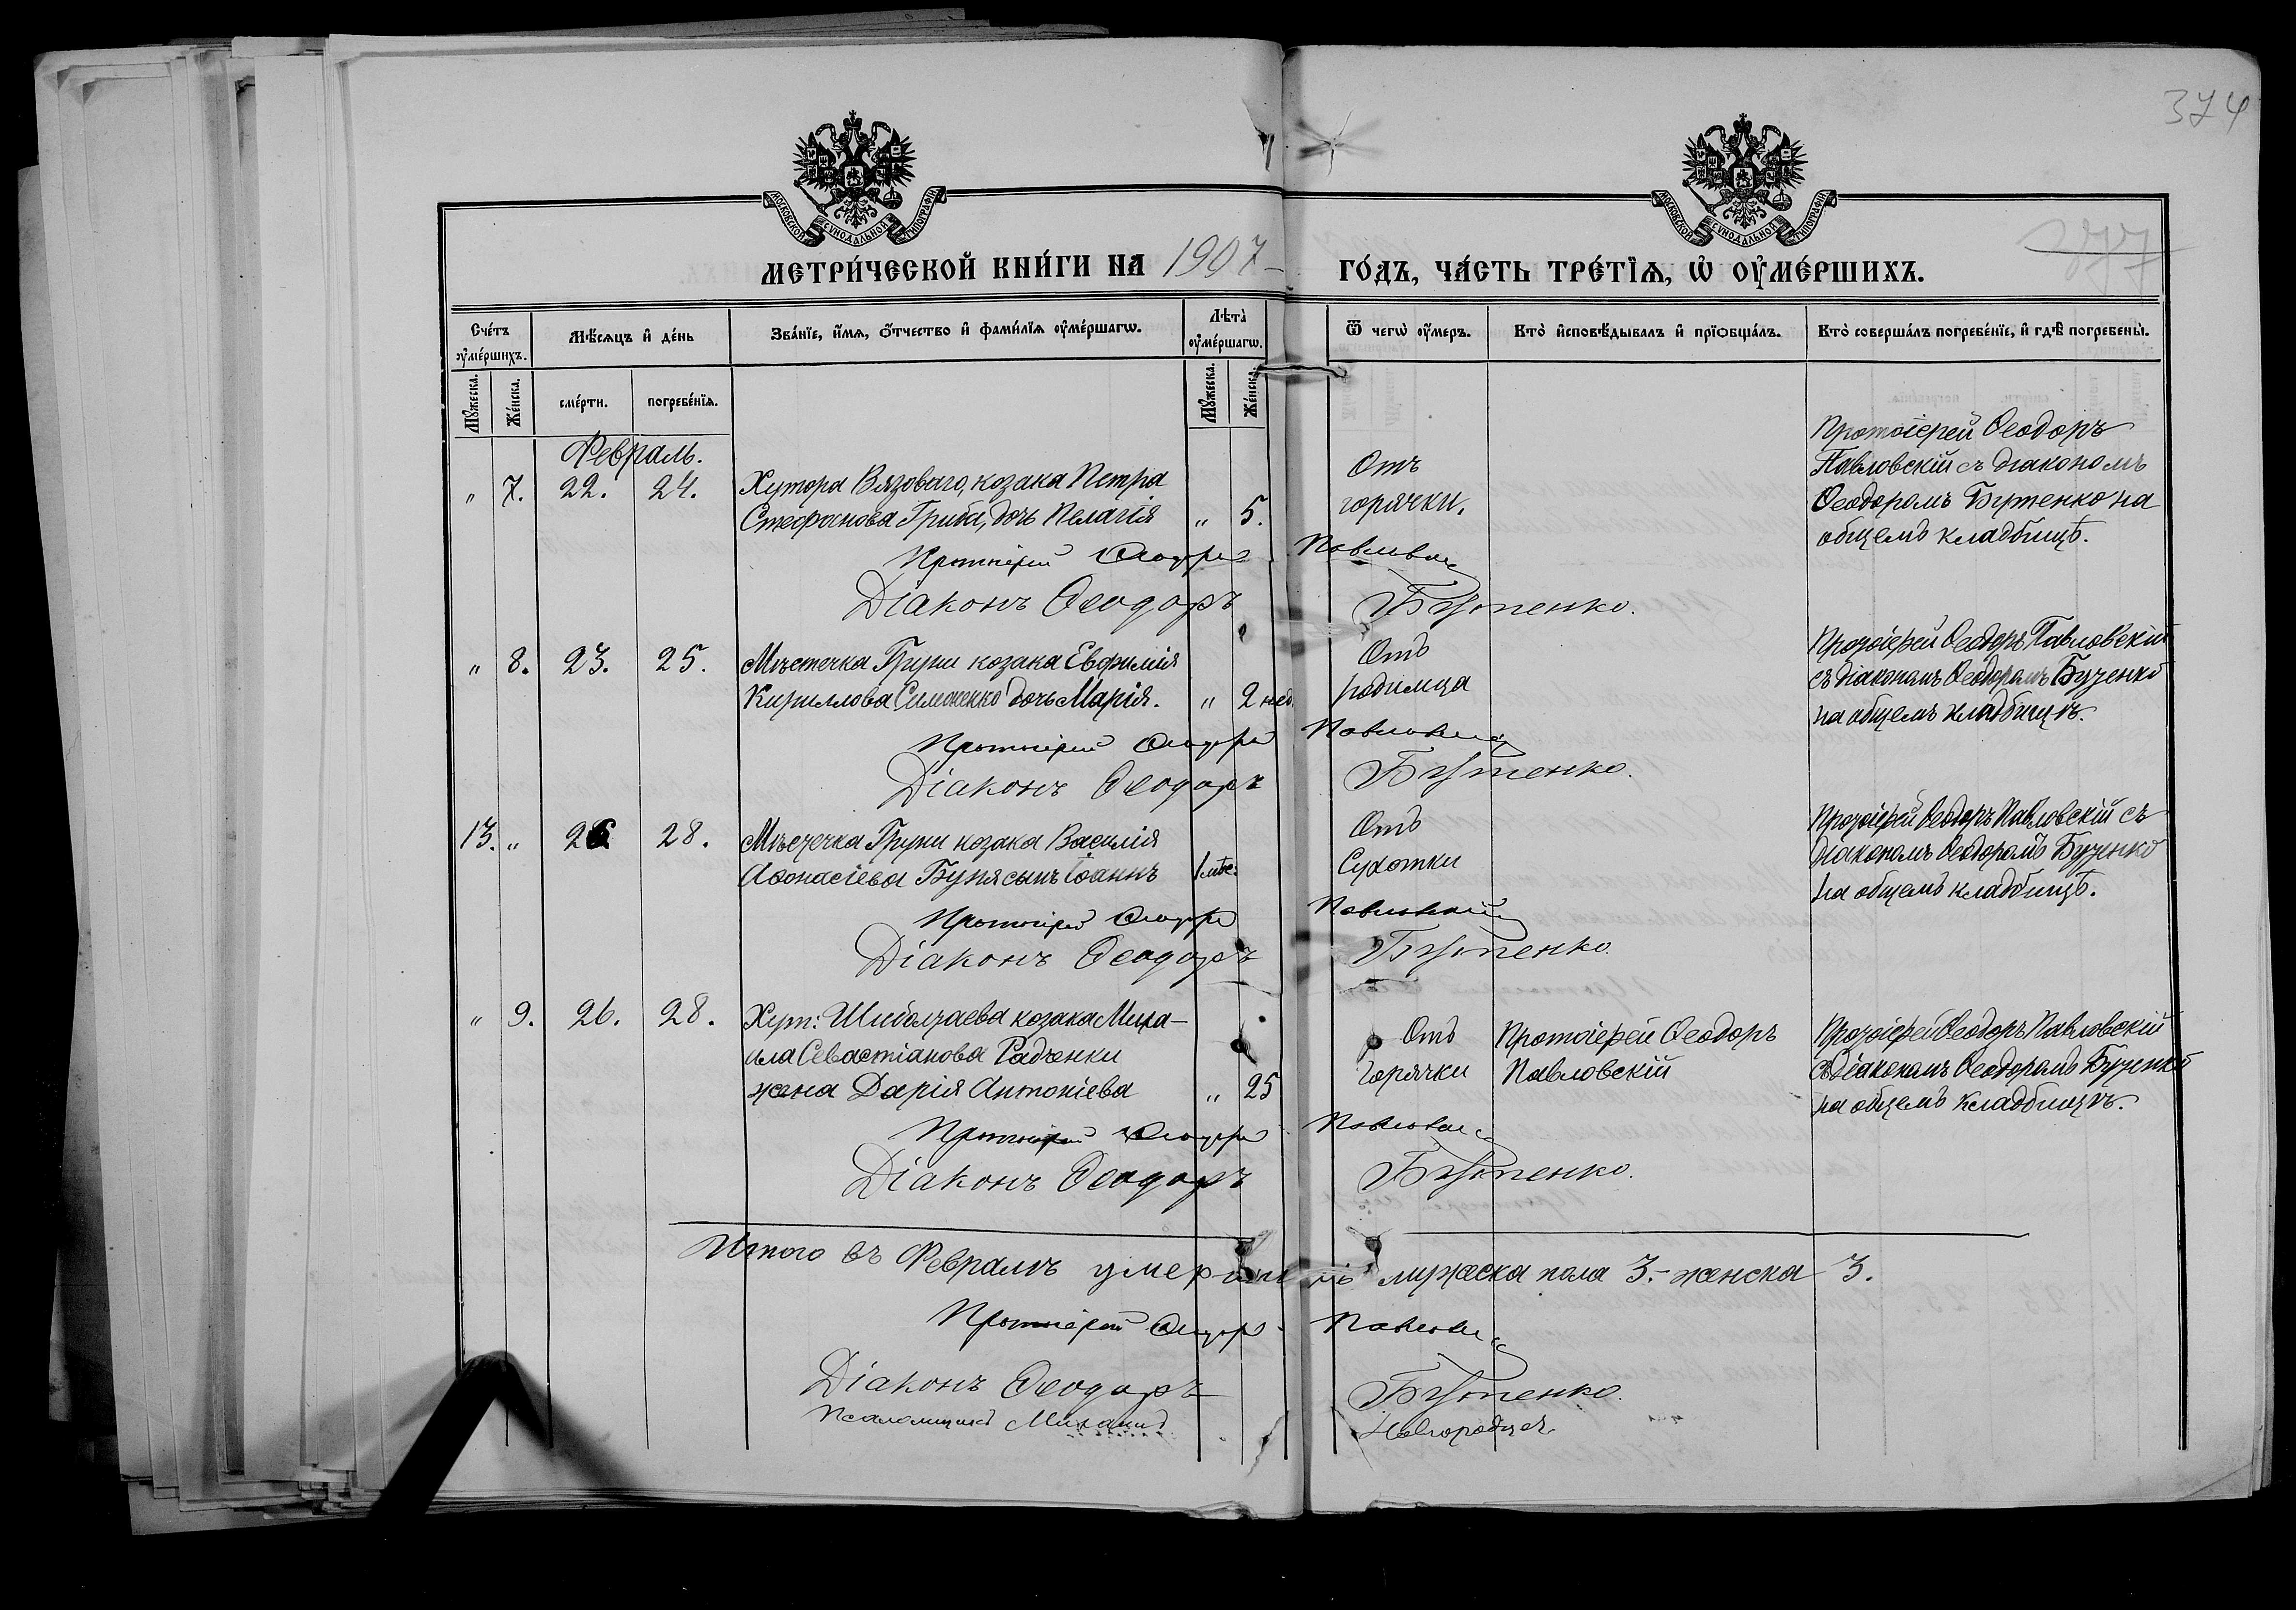 374
377
МОСКОВСКОЙ СѴНОДАЛЬНОЙ ТИПОГРАФІИ
МОСКОВСКОЙ СѴНОДАЛЬНОЙ ТИПОГРАФІИ
МЕТРИ́ЧЕСКОЙ КНИ́ГИ НА 1907 ГО́ДЪ, ЧА́СТЬ ТРЕ́ТІѦ, Ѡ҆ ОУ҆МЕ́РШИХЪ.
Сче́тъ оу҆ме́ршихъ.
Мѣ́сѧцъ и҆ де́нь
Зва́нїе, и҆́мѧ, ѻ҆́тчество и҆ фами́лїѧ оу҆ме́ршагѡ.
Лѣ̀та оу҆ме́ршагѡ.
Ѿ чегѡ̀ оу҆́меръ.
Кто̀ и҆сповѣ́дывалъ и҆ прїѻбща́лъ.
Кто̀ соверша́лъ погребе́нїе, и҆ гдѣ̀ погребены̀.
Мꙋ́жеска.
Же́нска.
сме́рти.
погребе́нїѧ.
Мꙋ́жеска.
Же́нска.
Февраль.
" 7. 22. 24. Хутора Вязоваго, козака Петра
Стефанова Гриба, дочь Пелагія " 5.
Отъ
горячки.
Протоіерей Ѳеодоръ
Павловскій съ діакономъ
Ѳеодоромъ Бутенко на
общемъ кладбищѣ.
Протоіерей Ѳеодоръ Павловскій
Діаконъ Ѳеодоръ Бутенко.
" 8. 23. 25. Мѣстечка Груни козака Евфимія
Кириллова Симоненко дочь Марія. " 2 нед.
Отъ
родимца
Протоіерей Ѳеодоръ Павловскій
съ діакономъ Ѳеодоромъ Бутенко
на общемъ кладбищѣ.
Протоіерей Ѳеодоръ Павловскій
Діаконъ Ѳеодоръ Бутенко.
13. " 26 28. Мѣстечка Груни козака Василія
Аѳонасіева Буня сынъ Іоаннъ
Отъ
Сухотки
Протоіерей Ѳеодоръ Павловскій съ
діакономъ Ѳеодоромъ Бутенко
на общемъ кладбищѣ.
Протоіерей Ѳеодоръ Павловскій
Діаконъ Ѳеодоръ Бутенко.
" 9. 26. 28. Хут: козака Миха-
ила Севастіанова Радченки
жена Дарія Антоніева " 25
Отъ
Горячки
Протоіерей Ѳеодоръ
Павловскій
Протоіерей Ѳеодоръ Павловскій
съ Діакономъ Ѳеодоромъ Бутенко
на общемъ кладбищѣ.
Протоіерей Ѳеодоръ Павловскій
Діаконъ Ѳеодоръ Бутенко.
Итого въ Февралѣ умершихъ мужеска пола 3.- женска 3.
Протоіерей Ѳеодоръ Павловскій
Діаконъ Ѳеодоръ Бутенко.
Псаломщикъ Михаилъ